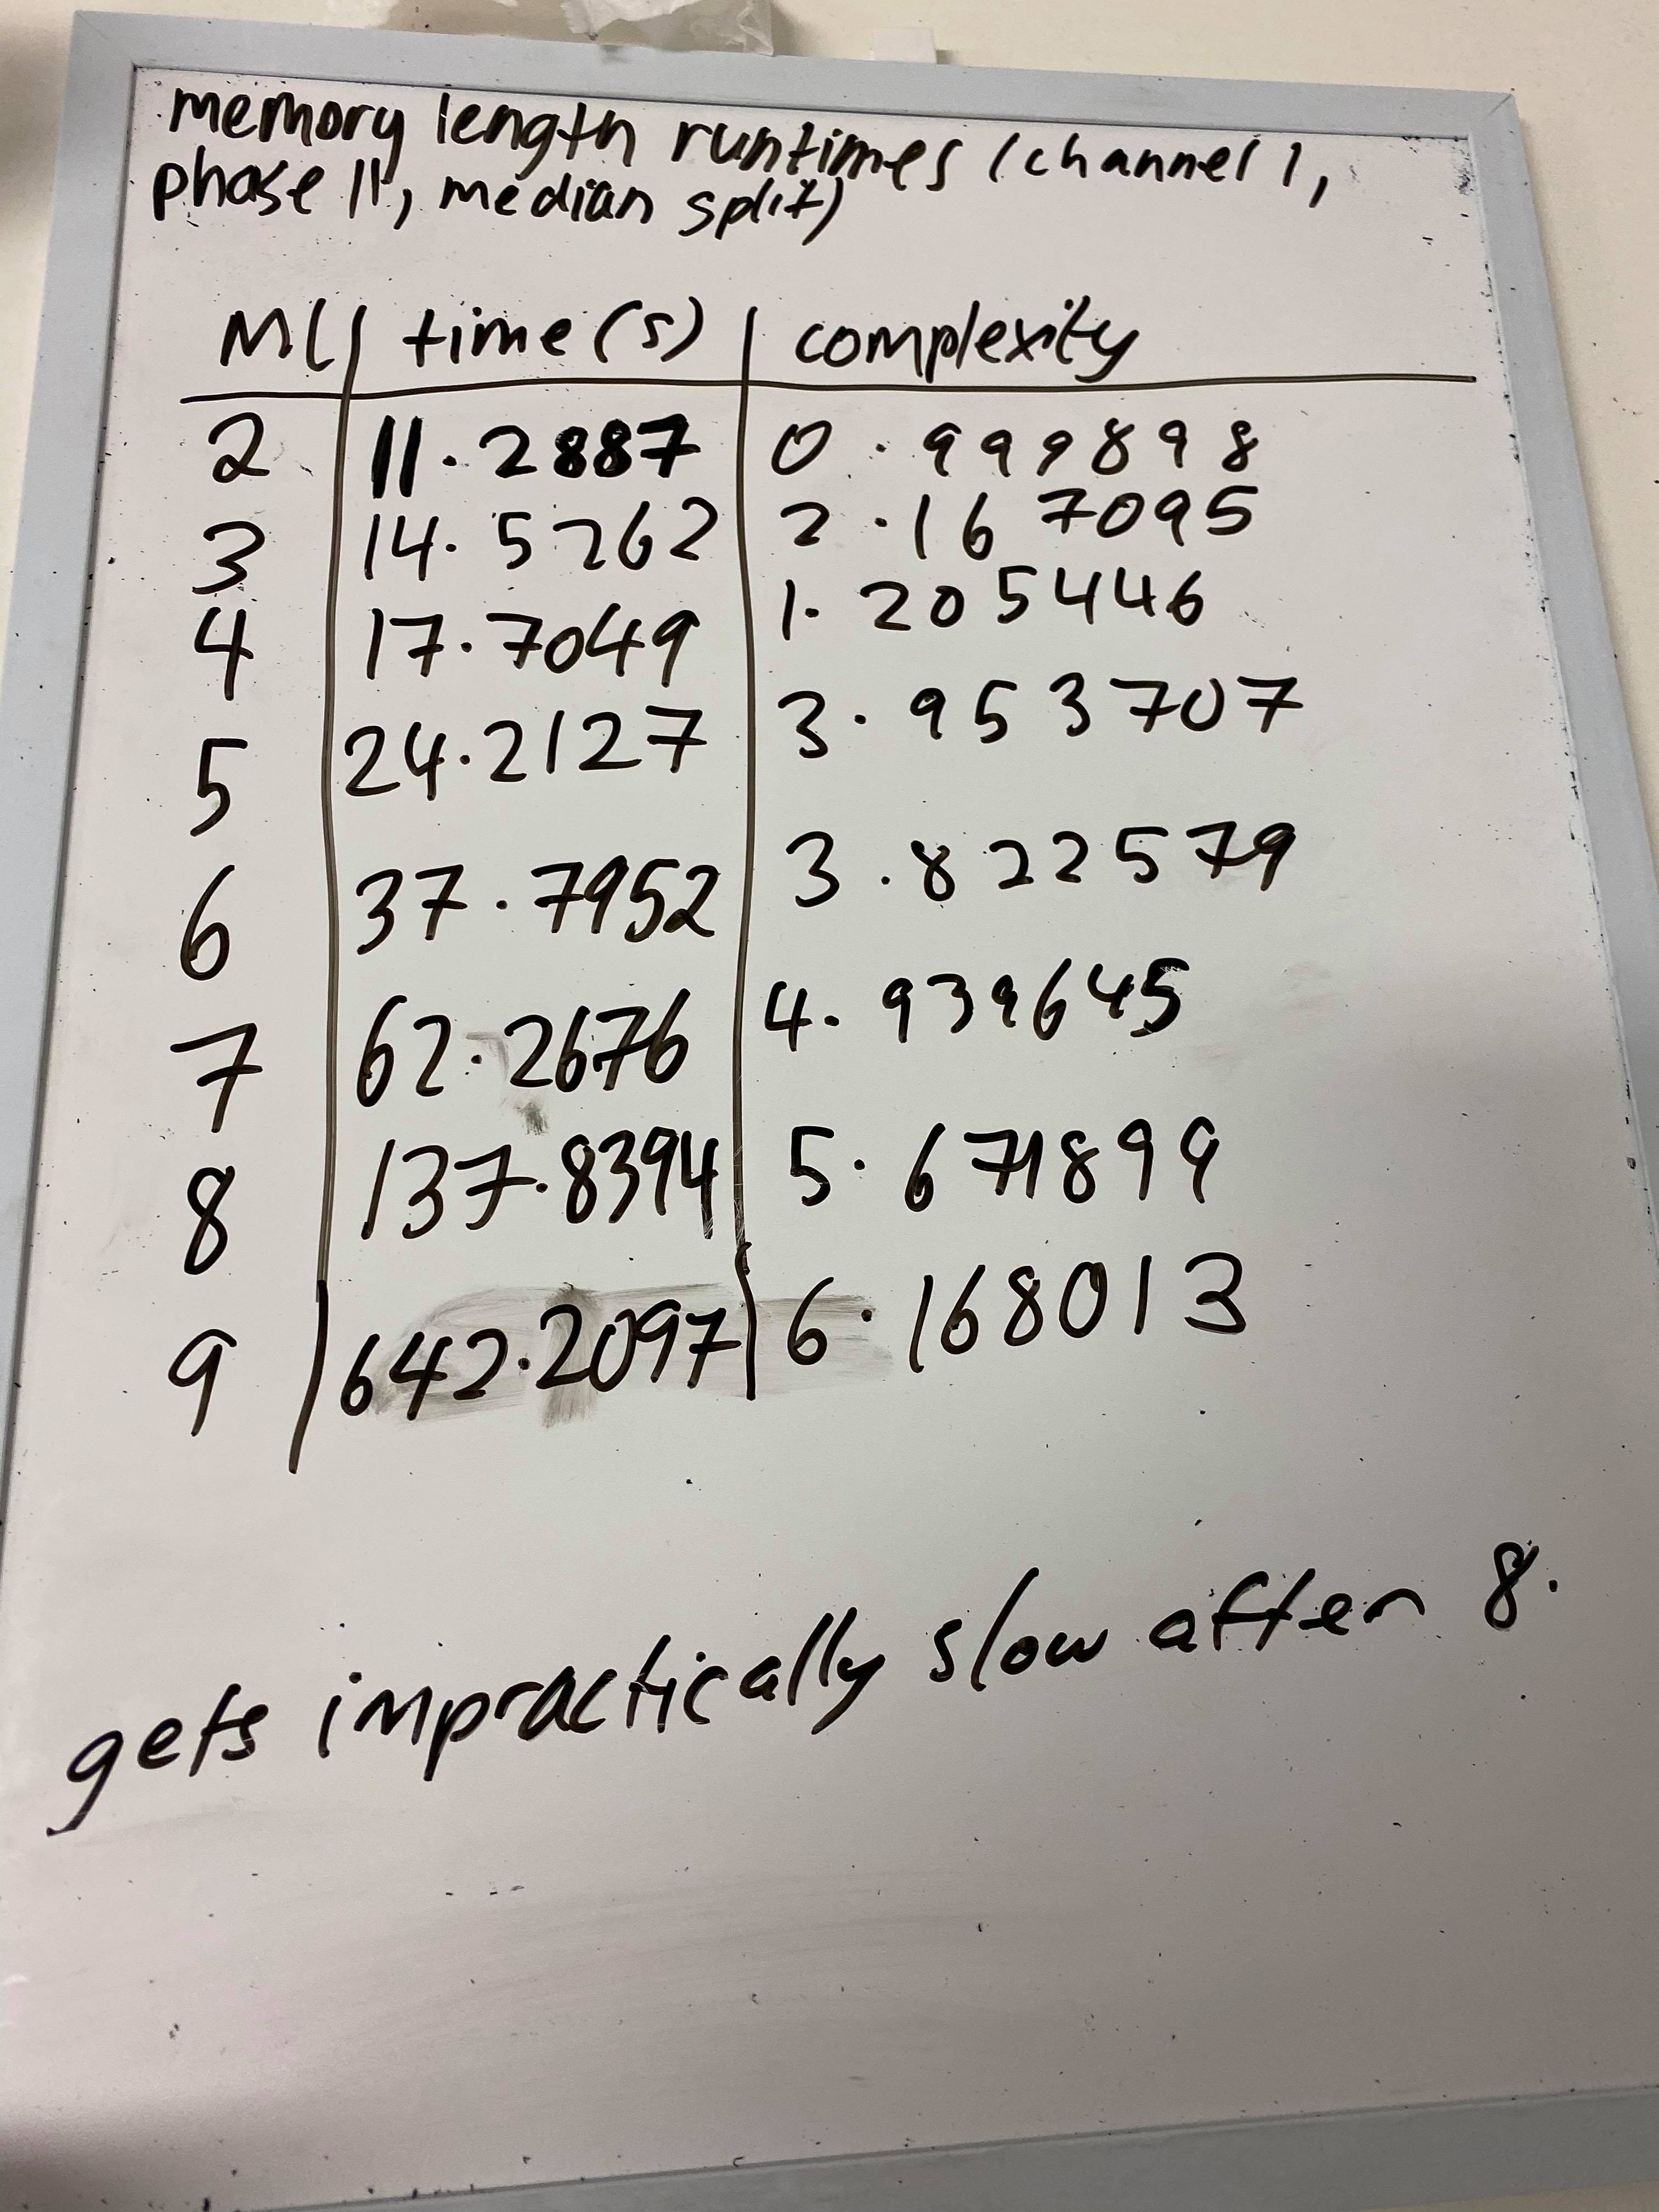 memory length runtimes (channel 1,
phase 11, median split)
ML | time (s) | complexity
2 | 11.2887 | 0.999898
3 | 14.5262 | 2.167095
4 | 17.7049 | 1.205446
5 | 24.2127 | 3.953707
6 | 37.7952 | 3.822579
7 | 62.2676 | 4.939645
8 | 137.8394 | 5.671899
9 | 642.2097 | 6.168013
gets impractically slow after 8.